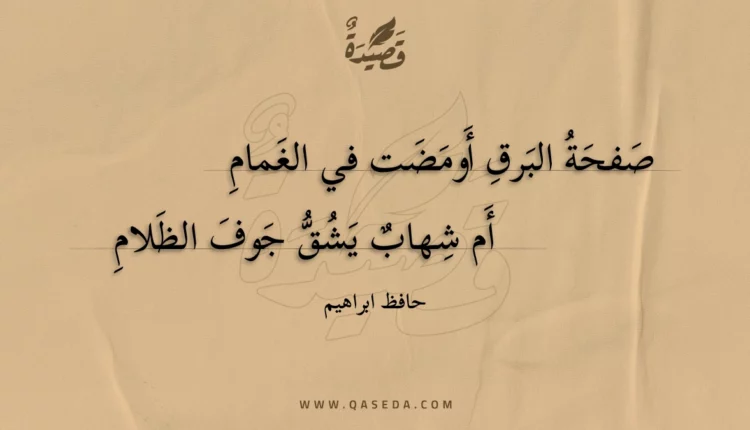 قَصِيْدَةٌ
صَفحَةُ البَرقِ أَومَضَت في الغَمامِ
أَم شِهابٌ يَشُقُّ جَوفَ الظَلامِ
حافظ ابراهيم
WWW.QASEDA.COM